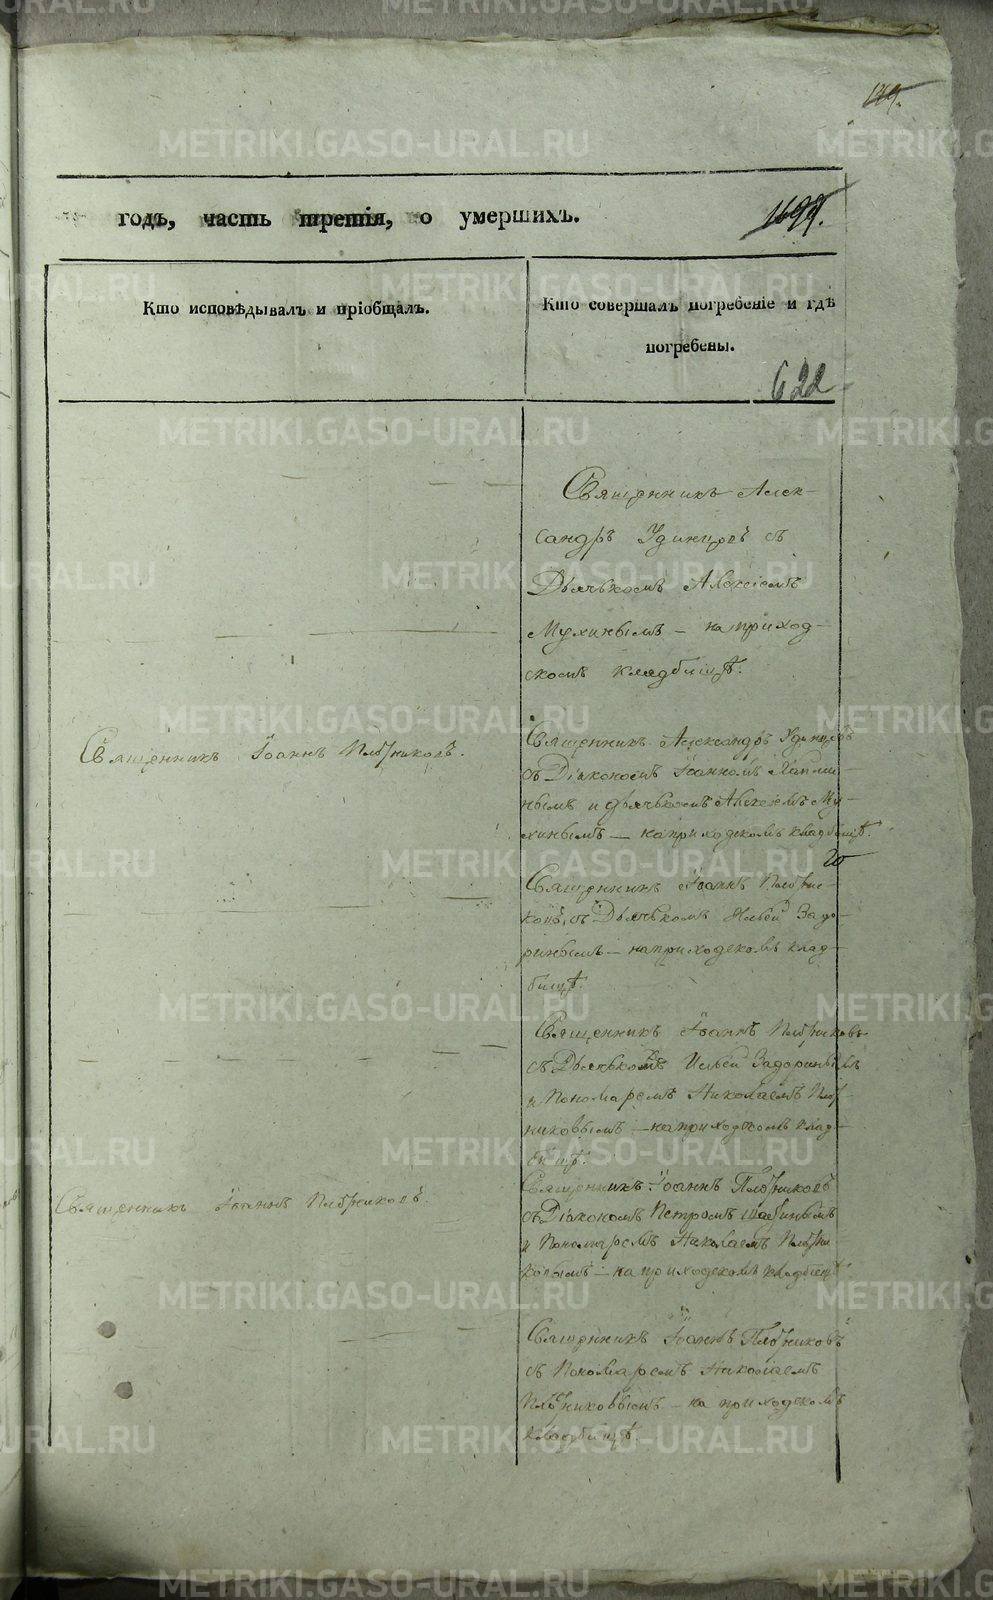 годъ, часть третія, о умершихъ.
Кто исповѣдывалъ и пріобщалъ.
Кто совершалъ погребеніе и гдѣ
погребены.
622
Священникъ Алек-
сандръ Удинцовъ съ
Дьячькомъ Алексіемъ
Мухинымъ — на приход-
скомъ кладбищѣ.
Священникъ Іоаннъ Плотниковъ.
Священникъ Александръ Удинцовъ
съ Діакономъ Іоанномъ
нымъ и дьячькомъ Алексіемъ Му-
хинымъ — на приходскомъ кладбищѣ.
Священникъ Іоаннъ Плотни-
ковъ, съ Дьячькомъ Ильей Задо-
ринымъ — на приходскомъ клад-
бищѣ.
Священникъ Іоаннъ Плотниковъ
съ Дьячькомъ Ильей Задоринымъ
и Пономаремъ Николаемъ Плот-
никовымъ — на приходскомъ клад-
бищѣ.
Священникъ Іоаннъ Плотниковъ.
Священникъ Іоаннъ Плотниковъ
съ Діакономъ Петромъ
и Пономаремъ Николаемъ Плотни
ковымъ — на приходскомъ кладбищѣ
Священникъ Іоаннъ Плотниковъ
съ Пономаремъ Николаемъ
Плотниковымъ — на приходскомъ
кладбищѣ.
METRIKI.GASO-URAL.RU